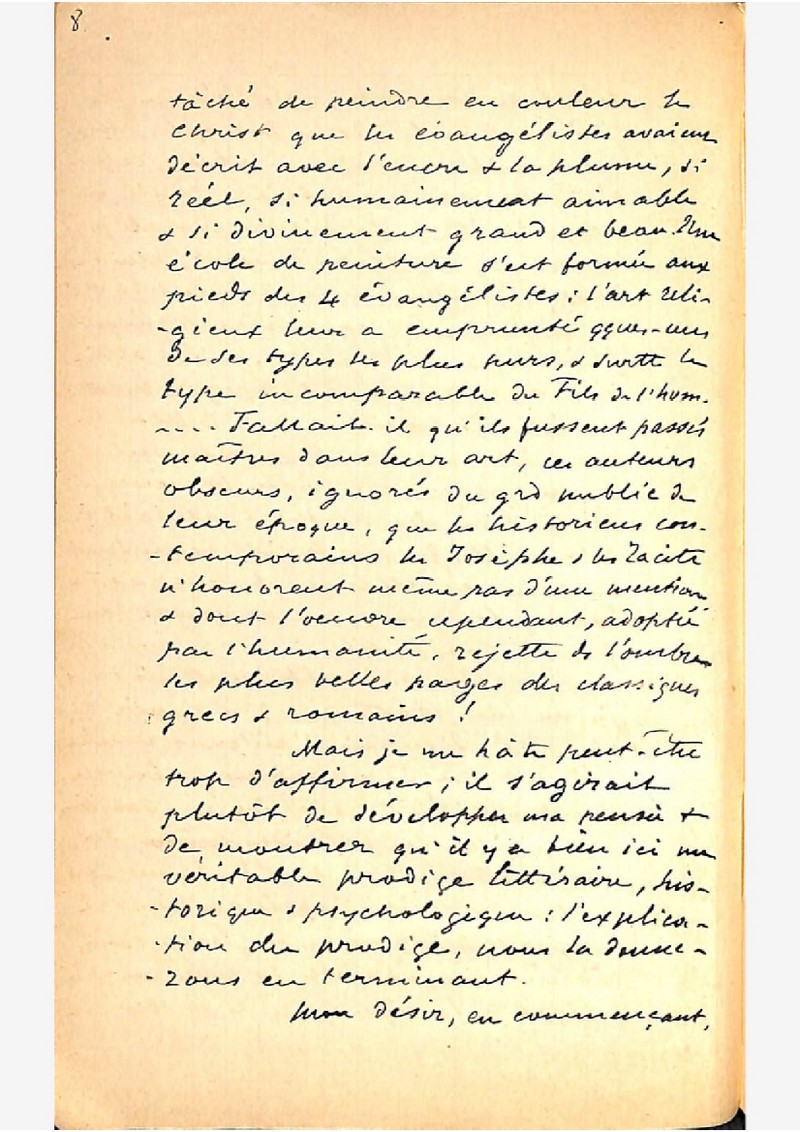 8
tâché de peindre en couleur le
Christ que les évangélistes avaient
décrit avec l'encre & la plume, si
réel, si humainement aimable
& si divinement grand et beau. Une
école de peinture s'est formée aux
pieds des 4 évangélistes : l'art reli-
-gieux leur a emprunté qques-uns
de ses types les plus purs, & surtt le
type incomparable du Fils de l'hom.
.... Fallait-il qu'ils fussent passés
maîtres dans leur art, ces auteurs
obscurs, ignorés du grd public de
leur époque, que les historiens con-
-temporains les Josèphe & les Tacite
n'honorent même pas d'une mention
& dont l'oeuvre cependant, adoptée
par l'humanité, rejette ds l'ombre
les plus belles pages des classiques
grecs & romains !
Mais je me hâte peut-être
trop d'affirmer ; il s'agirait
plutôt de développer ma pensée &
de montrer qu'il y a bien ici un
véritable prodige littéraire, his-
-torique & psychologique : l'explica-
-tion du prodige, nous la donne-
-rons en terminant.
Mon désir, en commençant,